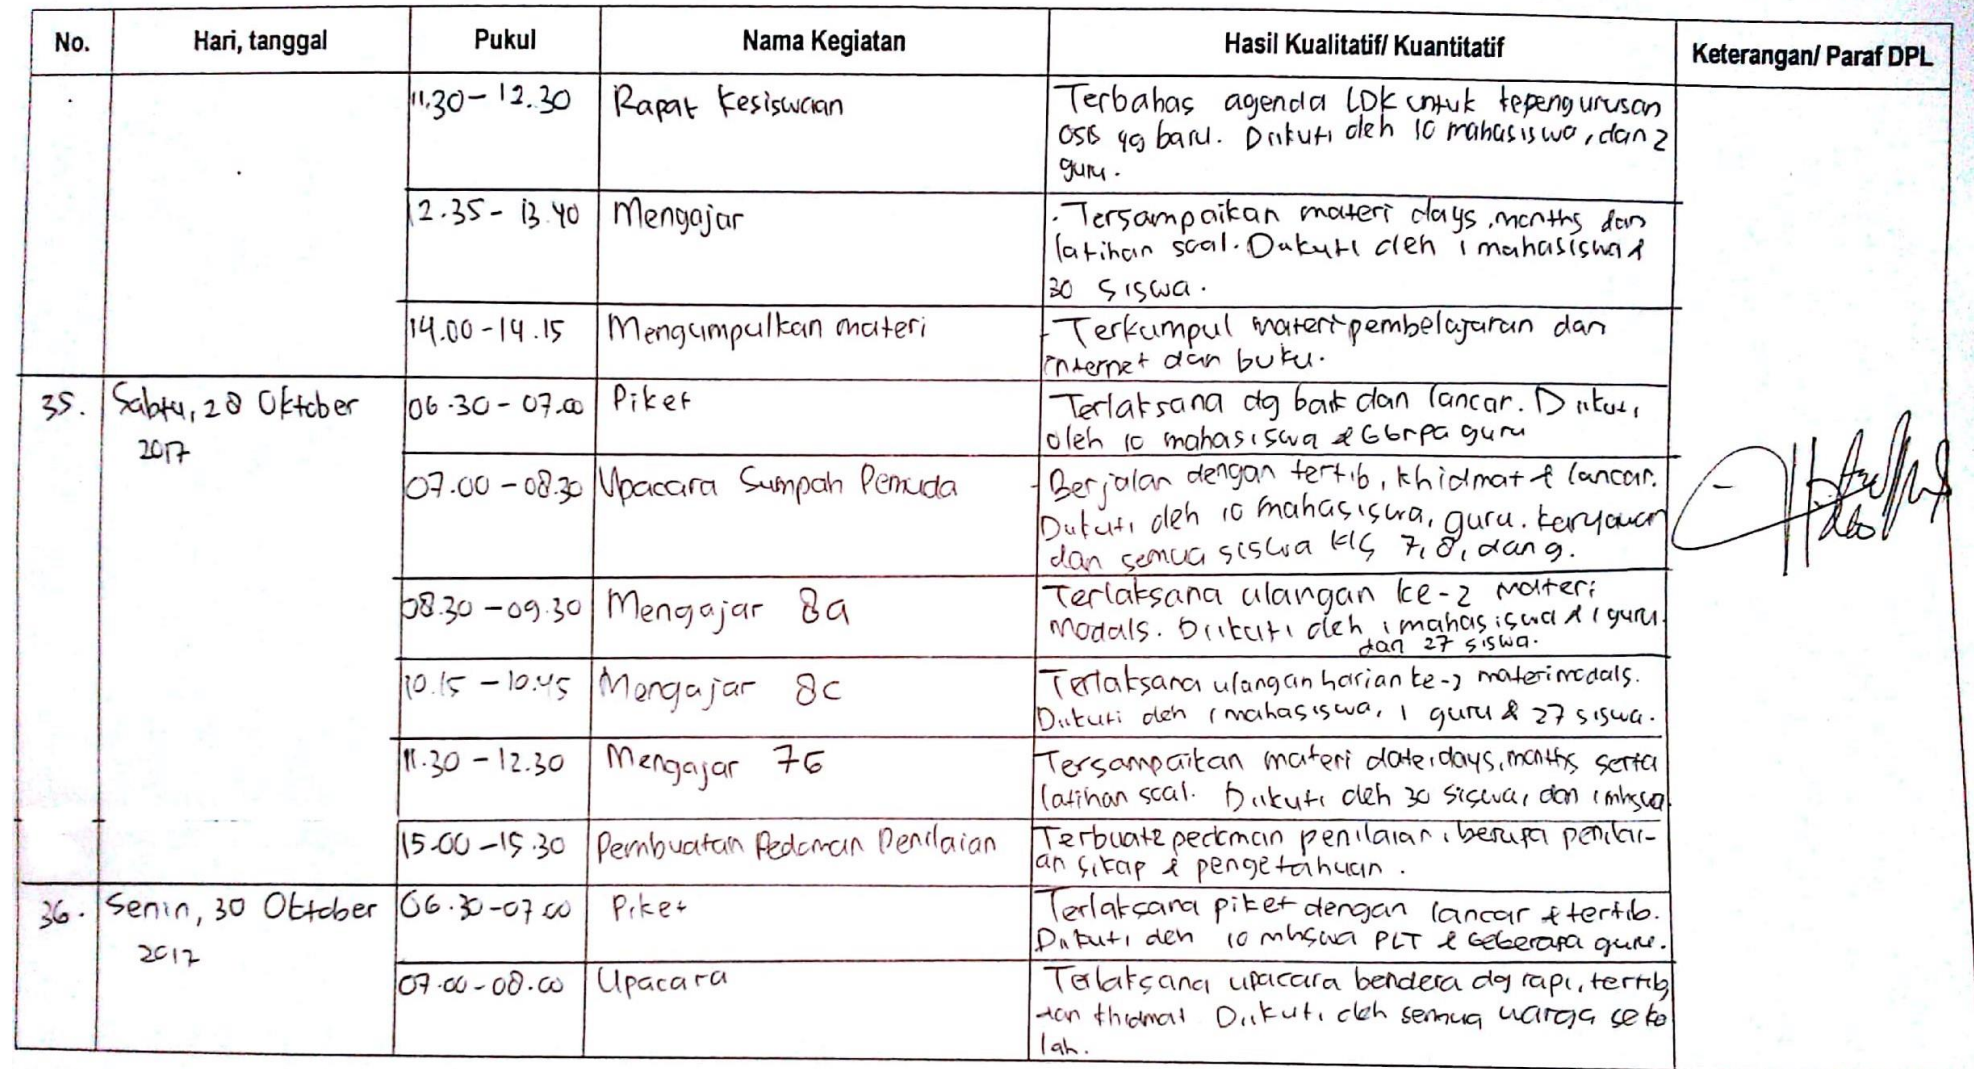 No. Hari, tanggal Pukul Nama Kegiatan Hasil Kualitatif/ Kuantitatif Keterangan/ Paraf DPL
11.30 - 12.30 Rapat Kesiswaan Terbahas agenda LDK untuk kepengurusan
OSIS yg baru. Diikuti oleh 10 mahasiswa, dan 2
guru.
12.35 - 13.40 Mengajar - Tersampaikan materi days, months dan
latihan soal. Diikuti oleh 1 mahasiswa &
30 siswa.
14.00 - 14.15 Mengumpulkan materi - Terkumpul materi pembelajaran dari
internet dan buku.
35. Sabtu, 28 Oktober 06.30 - 07.00 Piket Terlaksana dg baik dan lancar. Diikuti
2017 oleh 10 mahasiswa & bbrpa guru
07.00 - 08.30 Upacara Sumpah Pemuda - Berjalan dengan tertib, khidmat & lancar.
Diikuti oleh 10 mahasiswa, guru, karyawan
dan semua siswa kls 7, 8, dan 9.
08.30 - 09.30 Mengajar 8a Terlaksana ulangan ke-2 materi
Modals. Diikuti oleh 1 mahasiswa & 1 guru
dan 27 siswa.
10.15 - 10.45 Mengajar 8c Terlaksana ulangan harian ke-2 materi modals.
Diikuti oleh 1 mahasiswa, 1 guru & 27 siswa.
11.30 - 12.30 Mengajar Tersampaikan materi date, days, months serta
latihan soal. Diikuti oleh 30 siswa, dan 1 mhswa
15.00 - 15.30 Pembuatan Pedoman Penilaian Terbuat pedoman penilaian, berupa penilai-
an sikap & pengetahuan.
36. Senin, 30 Oktober 06.30 - 07.00 Piket Terlaksana piket dengan lancar & tertib.
2017 Diikuti oleh 10 mhswa PLT & beberapa guru.
07.00 - 08.00 Upacara Terlaksana upacara bendera dg rapi, tertib
dan khidmat Diikuti oleh semua warga seko
lah.